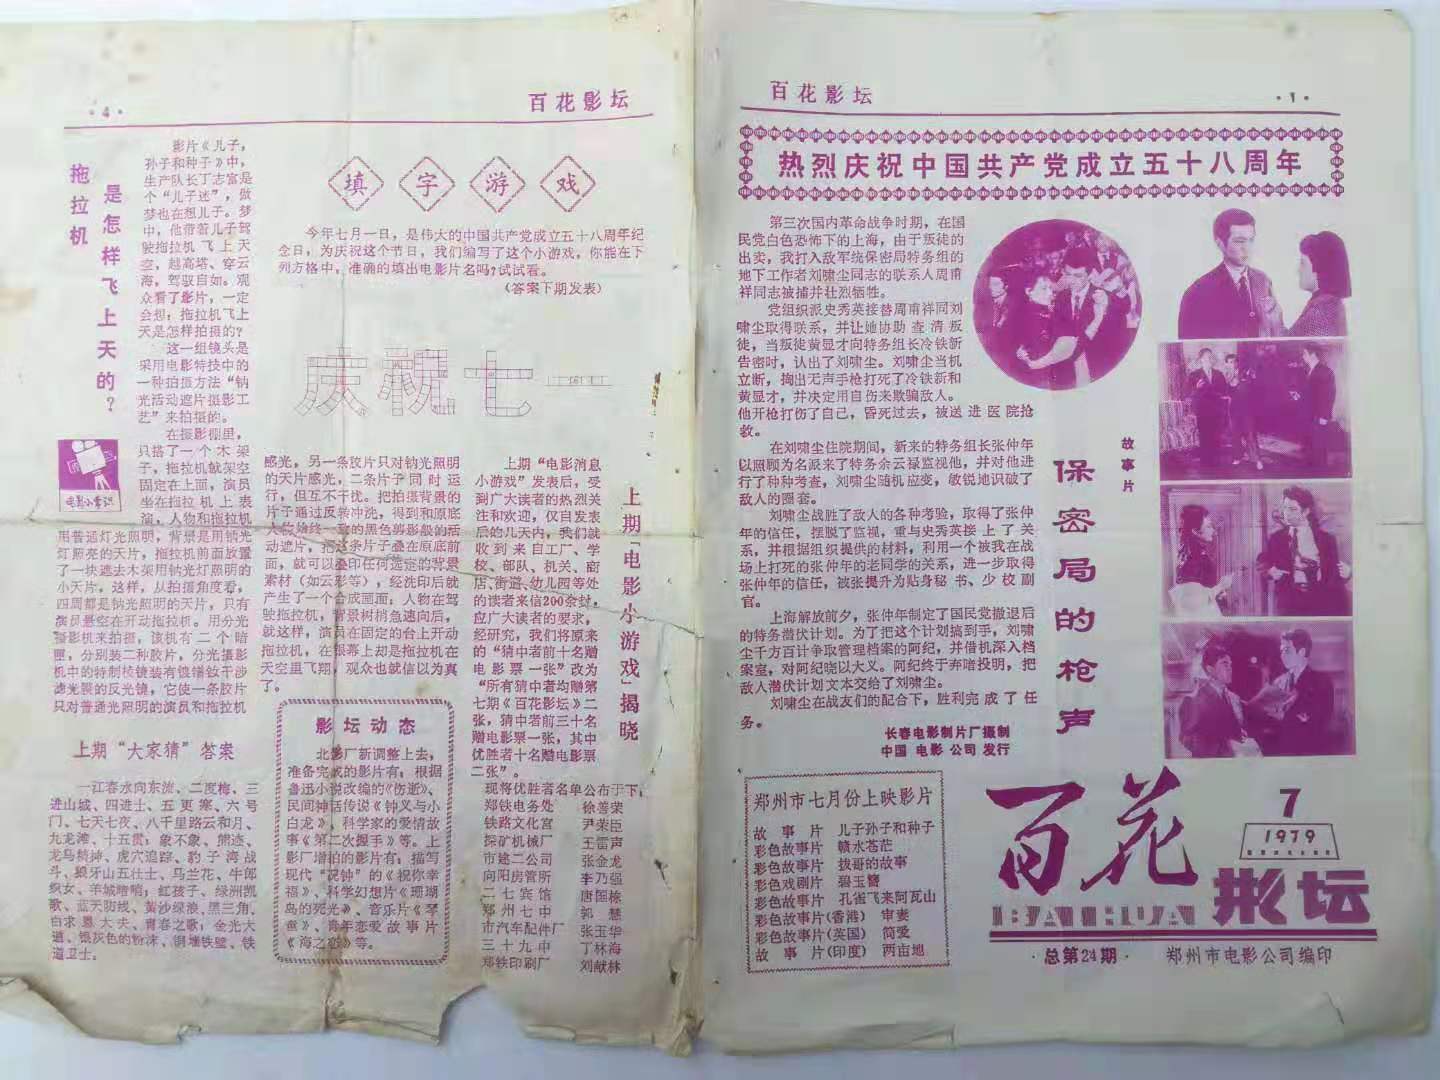 ·4·
百花影坛
拖拉机
是怎样飞上天的？
影片《儿子，
孙子和种子》中，
生产队长丁志富是
个“儿子迷”，做
梦也在想儿子。梦
中，他带着儿子驾
驶拖拉机飞上天
空，越高塔、穿云
海，驾驭自如。观
众看了影片，一定
会想：拖拉机飞上
天是怎样拍摄的？
这一组镜头是
采用电影特技中的
一种拍摄方法“钠
光活动遮片摄影工
艺”来拍摄的。
在摄影棚里，
只搭了一个木架
子，拖拉机就架空
固定在上面，演员
坐在拖拉机上表
演，人物和拖拉机
用普通灯光照明，背景是用钠光
灯照亮的天片，拖拉机前面放置
了一块遮去木架用钠光灯照明的
小天片。这样，从拍摄角度看，
四周都是钠光照明的天片，只有
演员悬空在开动拖拉机。用分光
摄影机来拍摄，该机有二个暗
匣，分别装二种胶片，分光摄影
机中的特制棱镜装有镀镨钕干涉
滤光膜的反光镜，它使一条胶片
只对普通光照明的演员和拖拉机
电影小常识
感光，另一条胶片只对钠光照明
的天片感光，二条片子同时运
行，但互不干扰。把拍摄背景的
片子通过反转冲洗，得到和原底
人物始终一致的黑色剪影般的活
动遮片，把这条片子叠在原底前
面，就可以叠印任何选定的背景
素材（如云彩等），经洗印后就
产生了一个合成画面：人物在驾
驶拖拉机，背景树梢急速向后，
就这样，演员在固定的台上开动
拖拉机，在银幕上却是拖拉机在
天空里飞翔，观众也就信以为真
了。
填字游戏
今年七月一日，是伟大的中国共产党成立五十八周年纪
念日，为庆祝这个节日，我们编写了这个小游戏，你能在下
列方格中，准确的填出电影片名吗？试试看。
（答案下期发表）
庆祝七一
上期「电影小游戏」揭晓
上期“电影消息
小游戏”发表后，受
到广大读者的热烈关
注和欢迎，仅自发表
后的几天内，我们就
收到来自工厂、学
校、部队、机关、商
店、街道、幼儿园等处
的读者来信200余封，
应广大读者的要求，
经研究，我们将原来
的“猜中者前十名赠
电影票一张”改为
“所有猜中者均赠第
七期《百花影坛》二
张，猜中者前三十名
赠电影票一张，其中
优胜者十名赠电影票
二张”。
现将优胜者名单公布于下：
郑铁电务处 徐善荣
铁路文化宫 尹荣臣
探矿机械厂 王雷声
市建二公司 张金龙
向阳房管所 李乃强
二七宾馆 唐国栋
郑州七中 郭慧
市汽车配件厂 张玉华
三十九中 丁林海
郑铁印刷厂 刘献林
上期“大家猜”答案
一江春水向东流、二度梅、三
进山城、四进士、五更寒、六号
门、七天七夜、八千里路云和月、
九龙滩、十五贯；象不象、熊迹、
龙马精神、虎穴追踪、豹子湾战
斗、狼牙山五壮士、马兰花、牛郎
织女、羊城暗哨；红孩子、绿洲凯
歌、蓝天防线、黄沙绿浪、黑三角、
白求恩大夫、青春之歌；金光大
道、银灰色的粉末、铜墙铁壁、铁
道卫士。
影坛动态
北影厂新调整上去，
准备完成的影片有：根据
鲁迅小说改编的《伤逝》、
民间神话传说《钟义与小
白龙》、科学家的爱情故
事《第二次握手》等。上
影厂增拍的影片有：描写
现代“况钟”的《祝你幸
福》、科学幻想片《珊瑚
岛的死光》、音乐片《琴
童》、青年恋爱故事片
《海之恋》等。
百花影坛
·1·
热烈庆祝中国共产党成立五十八周年
第三次国内革命战争时期，在国
民党白色恐怖下的上海，由于叛徒的
出卖，我打入敌军统保密局特务组的
地下工作者刘啸尘同志的联系人周甫
祥同志被捕并壮烈牺牲。
党组织派史秀英接替周甫祥同刘
啸尘取得联系，并让她协助查清叛
徒，当叛徒黄显才向特务组长冷铁新
告密时，认出了刘啸尘。刘啸尘当机
立断，掏出无声手枪打死了冷铁新和
黄显才，并决定用自伤来欺骗敌人。
他开枪打伤了自己，昏死过去，被送进医院抢
救。
在刘啸尘住院期间，新来的特务组长张仲年
以照顾为名派来了特务余云禄监视他，并对他进
行了种种考查，刘啸尘随机应变，敏锐地识破了
敌人的圈套。
刘啸尘战胜了敌人的各种考验，取得了张仲
年的信任，摆脱了监视，重与史秀英接上了关
系，并根据组织提供的材料，利用一个被我在战
场上打死的张仲年的老同学的关系，进一步取得
张仲年的信任，被张提升为贴身秘书、少校副
官。
上海解放前夕，张仲年制定了国民党撤退后
的特务潜伏计划。为了把这个计划搞到手，刘啸
尘千方百计争取管理档案的阿纪，并借机深入档
案室，对阿纪晓以大义。阿纪终于弃暗投明，把
敌人潜伏计划文本交给了刘啸尘。
刘啸尘在战友们的配合下，胜利完成了任
务。
长春电影制片厂摄制
中国电影公司发行
故事片
保密局的枪声
郑州市七月份上映影片
故事片 儿子孙子和种子
彩色故事片 赣水苍茫
彩色故事片 拔哥的故事
彩色戏剧片 碧玉簪
彩色故事片 孔雀飞来阿瓦山
彩色故事片（香港） 审妻
彩色故事片（英国） 简爱
故事片（印度） 两亩地
百花影坛
7
1979
BAIHUA
·总第24期· 郑州市电影公司编印